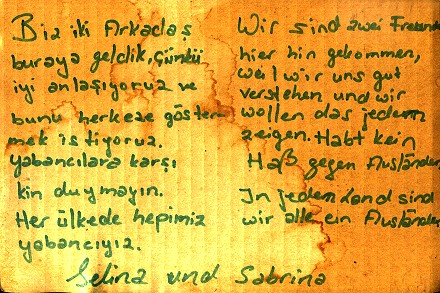 Biz iki Arkadaş
buraya geldik, Çünkü
iyi anlaşıyoruz ve
bunu herkeze göster
mek istiyoruz.
Yabancılara karşı
kin duymayın.
Her ülkede hepimiz
yabancıyız.
Wir sind zwei Freunde
hier hin gekommen,
weil wir uns gut
verstehen und wir
wollen das jedem
zeigen. Habt kein
Haß gegen Ausländer.
In jeden Land sind
wir alle ein Ausländer
Selina und Sabrina